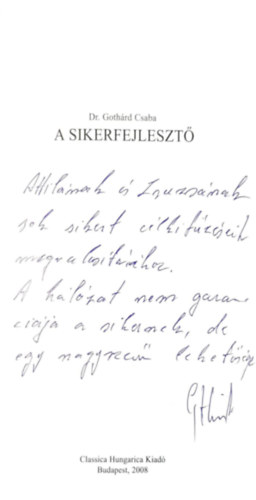 Dr. Gothárd Csaba
A SIKERFEJLESZTŐ
Attilának és Zsuzsának
sok sikert célkitűzéseik
megvalósításához.
A hálózat nem garan
ciája a sikernek, de
egy nagyszerű lehetőség
Classica Hungarica Kiadó
Budapest, 2008